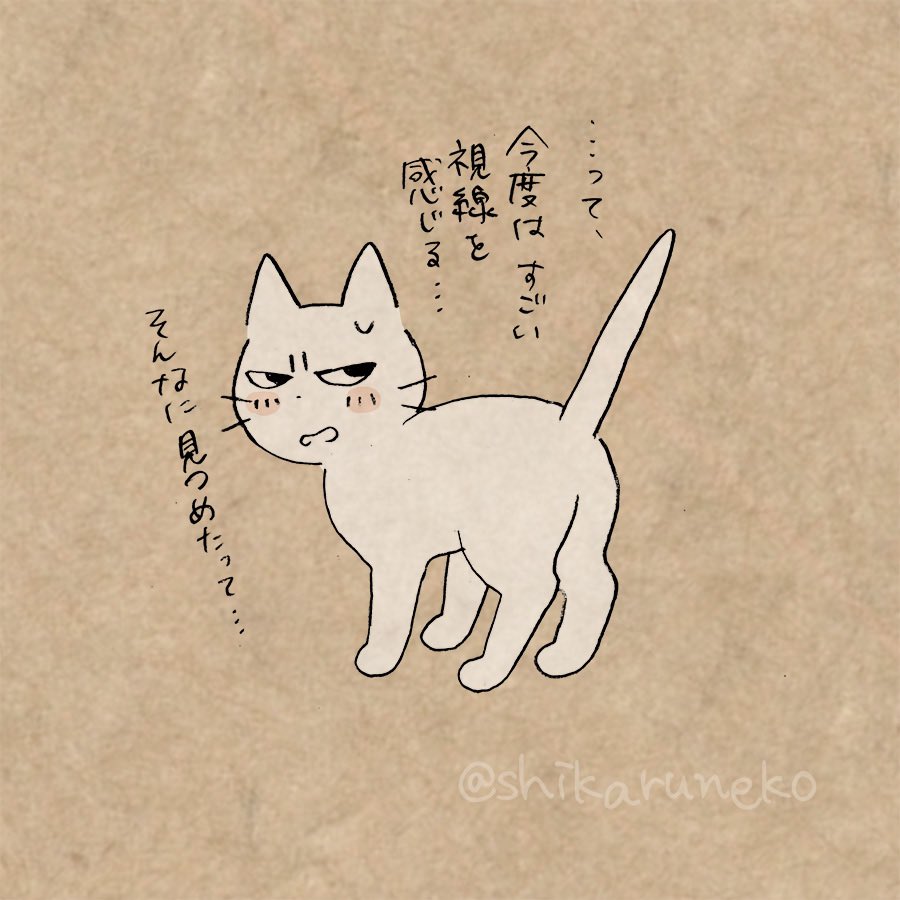 …って、
今度は すごい
視線を
感じる…
そんなに見つめたって…
@shikaruneko